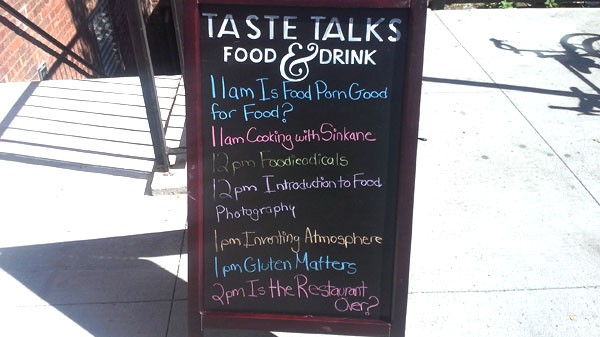 TASTE TALKS
FOOD & DRINK
11am Is Food Porn Good
for Food?
11am Cooking with Sinkane
12pm Foodieodicals
12pm Introduction to Food
Photography
1pm Inventing Atmosphere
1pm Gluten Matters
2pm Is the Restaurant
Over?